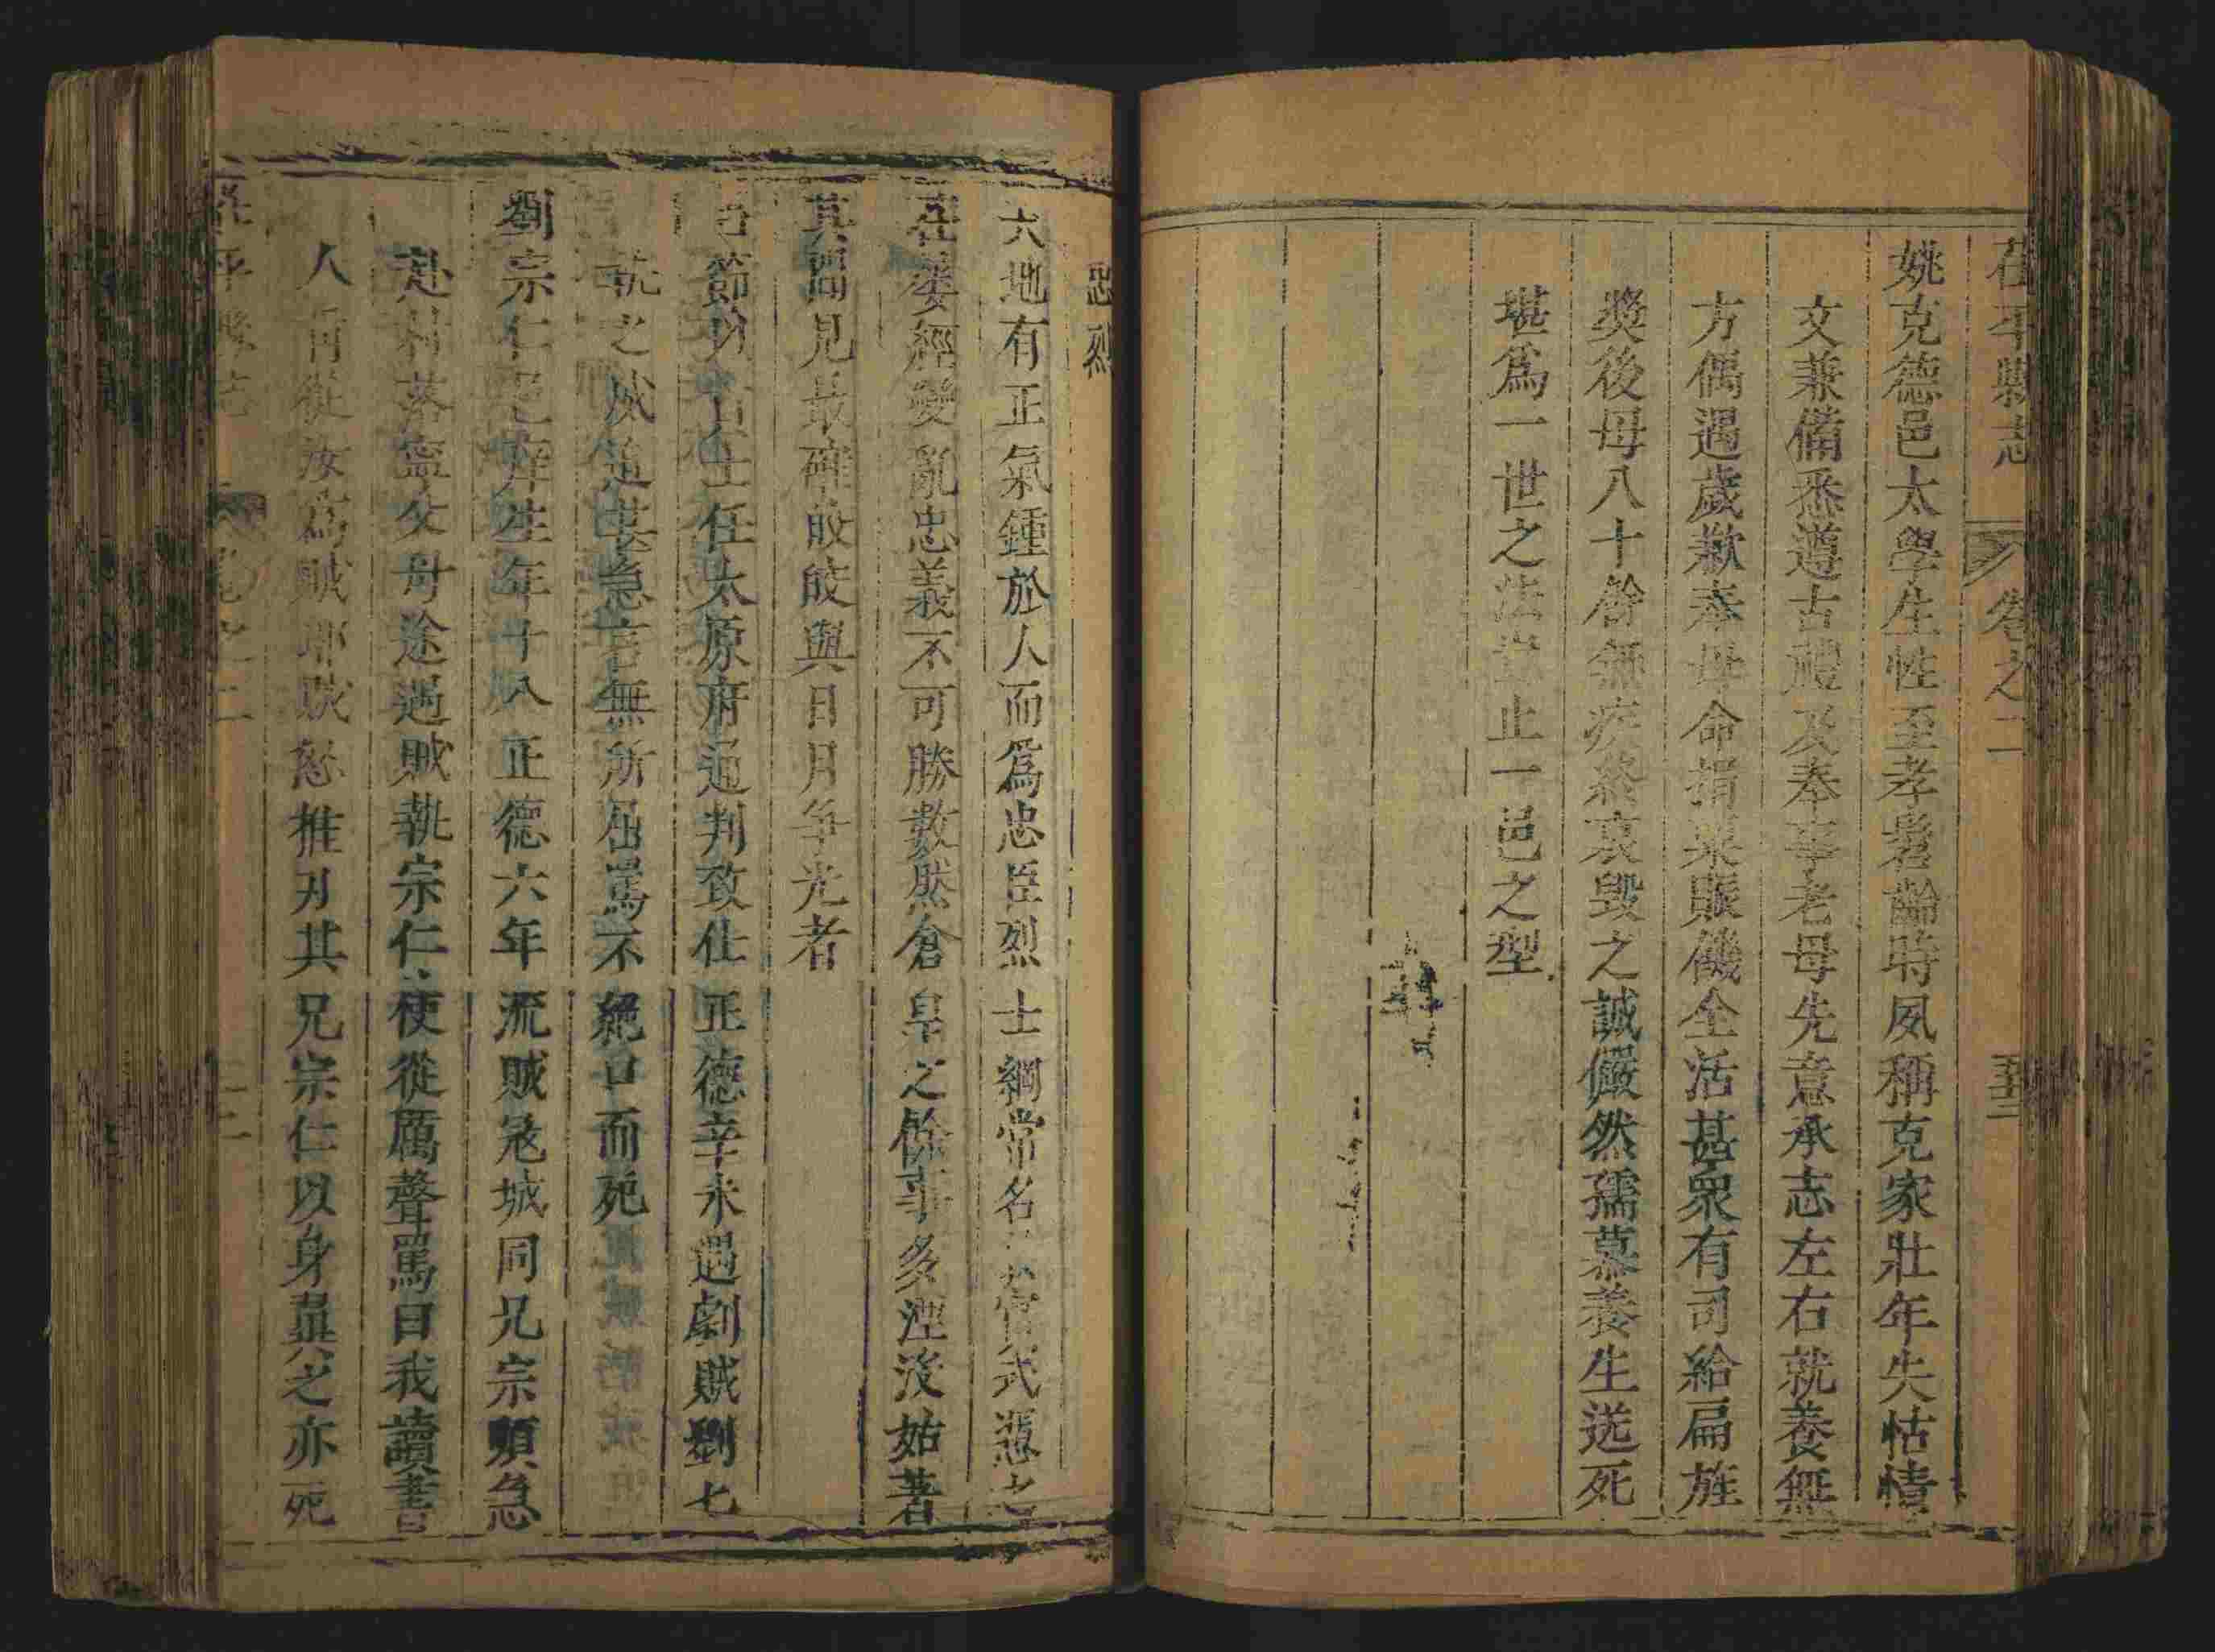 茌平縣志 卷之二
姚克德邑太學生性至孝髫齡時夙稱克家壯年失怙情
文兼備悉遵古禮及奉事老母先意承志左右就養無
方偶遇歲歉奉母命捐粟賑饑全活甚衆有司給扁旌
奬後母八十餘無疾終哀毀之誠儼然孺慕養生送死
堪爲一世之法豈止一邑之型
忠烈
地有正氣鍾於人而爲忠臣烈士綱常名
在蓌經變亂忠義不可勝數然倉皇之餘事多湮沒姑著
其聞見最確皎皎與日月争光者
節 任太原府通判致仕正德辛未遇劇賊劉七
執之威逼甚急言無所屈罵不絕口而死
劉宗仁邑庠生年十八正德六年流賊冦城同兄宗順急
赴村落寧父母途遇賊執宗仁使從厲聲罵曰我讀書
人肯從汝爲賊耶賊怒推刃其兄宗仁以身蔽之亦死
茌平縣志 卷之二